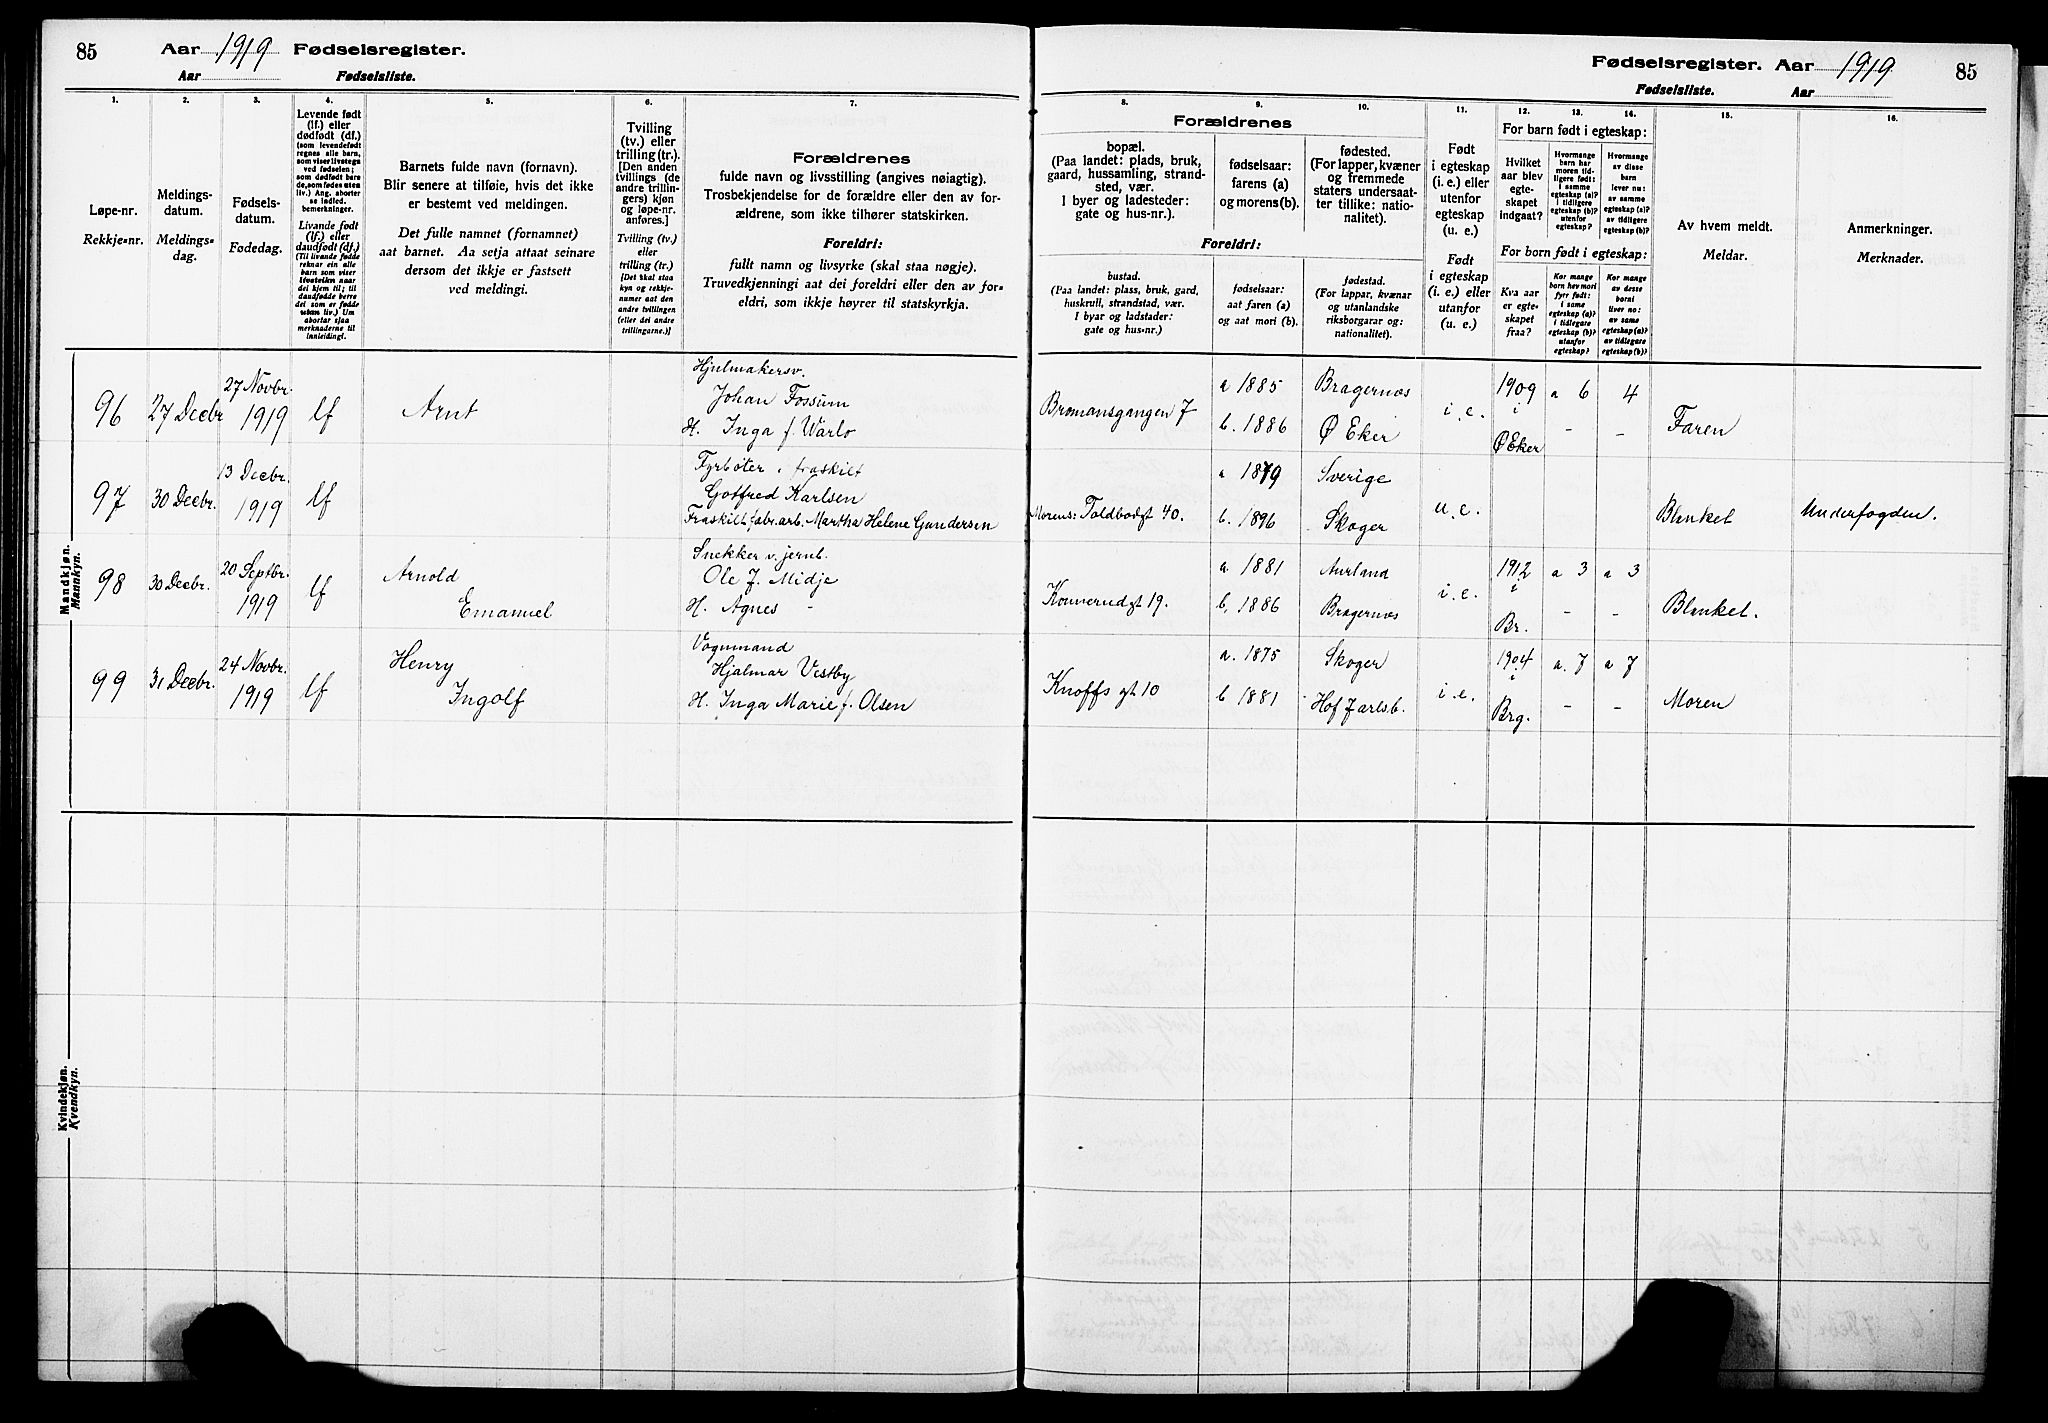 85 Aar 1919 Fødselsregister.
Aar Fødselsliste.
1. 2. 3. 4. 5. 6. 7.
Løpe-nr.
Rekkje-nr.
Meldings-
datum.
Meldings-
dag.
Fødsels-
datum.
Fødedag.
Levende født
(lf.) eller
dødfødt (df.)
(som levendefødt
regnes alle barn,
som viser livstegn
ved fødselen;
som dødfødt bare
de, som fødes uten
liv.) Ang. aborter
se indled.
bemerkninger.
Livande født
(lf.) eller
daudfødt (df.)
(Til livande fødde
reknar ein alle
barn som viser
livsteikn naar
dei kjem til; til
daudfødde berre
dei som er fødde
utan liv.) Um
abortar sjaa
merknaderne til
innleidingi.
Barnets fulde navn (fornavn).
Blir senere at tilføie, hvis det ikke
er bestemt ved meldingen.
Det fulle namnet (fornamnet)
aat barnet. Aa setja attaat seinare
dersom det ikkje er fastsett
ved meldingi.
Tvilling
(tv.) eller
trilling (tr.).
[Den anden
tvillings (de
andre trillin-
gers) kjøn
og løpe-nr.
anføres.]
Tvilling (tv.)
eller
trilling (tr.)
[Det skal staa
kyn og rekkje-
numer aat den
andre tvillingen
(eller dei andre
trillingarne.)]
Forældrenes
fulde navn og livsstilling (angives nøiagtig).
Trosbekjendelse for de forældre eller den av for-
ældrene, som ikke tilhører statskirken.
Foreldri:
fullt namn og livsyrke (skal staa nøgje).
Truvedkjenningi aat dei foreldri eller den av for-
eldri, som ikkje høyrer til statskyrkja.
Mandkjøn.
Mannkyn.
96 27 Decbr 27 Novbr. 1919 lf Arnt
Hjulmakersv.
Johan Fossum
H. Inga f. Warlo
97 30 Decbr. 13 Decbr. 1919 lf
Fyrbøter, fraskilt
Gotfred Karlsen
Fraskilt fabr.arb. Martha Helene Gundersen
98 30 Decbr. 20 Septbr. 1919 lf Arnold
Emanuel
Snekker v. jernb.
Ole J. Midje
H. Agnes -
99 31 Decbr. 24 Novbr. 1919 lf Henry
Ingolf
Vognmand
Hjalmar Vestby
H. Inga Marie f. Olsen
Kvindekjøn.
Kvendkyn.
Fødselsregister. Aar 1919 85
Fødselsliste. Aar
8. 9. 10. 11. 12. 13. 14. 15. 16.
Forældrenes
bopæl.
(Paa landet: plads, bruk,
gaard, hussamling, strand-
sted, vær.
I byer og ladesteder:
gate og hus-nr.).
fødselsaar:
farens (a)
og morens (b).
fødested.
(For lapper, kvæner
og fremmede
staters undersaat-
ter tillike: natio-
nalitet).
Foreldri:
bustad.
(Paa landet: plass, bruk, gard,
huskrull, strandstad, vær.
I byar og ladstader:
gate og hus-nr.)
fødselsaar:
aat faren (a)
og aat mori (b).
fødestad.
(For lappar, kvænar
og utanlandske
riksborgarar og:
nationalitet).
Født
i egteskap
(i. e.) eller
utenfor
egteskap
(u. e.)
Født
i egteskap
(i. e.) eller
utanfor
egteskap
(u. e.)
For barn født i egteskap:
Hvilket
aar blev
egte-
skapet
indgaat?
Hvormange
barn har
moren tid-
ligere født:
i samme
egteskap (a)?
i tidligere
egteskap (b)?
utenfor
egteskap?
Hvormange
av disse
barn
lever nu:
av samme
egteskap (a)?
av tidligere
egteskap (b)?
For born født i egteskap:
Kva aar
er egte-
skapet
fraa?
Kor mange
born hev mori
fyrr født:
i same
egteskap (a)?
i tidlegare
egteskap (b)?
utanfor
egteskap?
Kor mange
av desse
borni
liver no:
av same
egteskap (a)?
av tidlegare
egteskap (b)?
Av hvem meldt.
Meldar.
Anmerkninger.
Merknader.
Bromansgangen 7 a 1885 Bragernæs i. e. 1909 a 6 4
b. 1886 Ø Eker i Ø Eker - - Faren
a 1879 Sverige
Morens: Toldbodgt 40. b. 1896 Skoger u. e. Blanket Underfogden.
a. 1881 Aurland i. e. 1912 a 3 a 3
b. 1886 Bragernæs i Br. - - Blanket.
a. 1875 Skoger 1904 a. 7 a 7
Knoffs gt 10 b 1881 Hof Jarlsb. i. e. i Brg. - - Moren